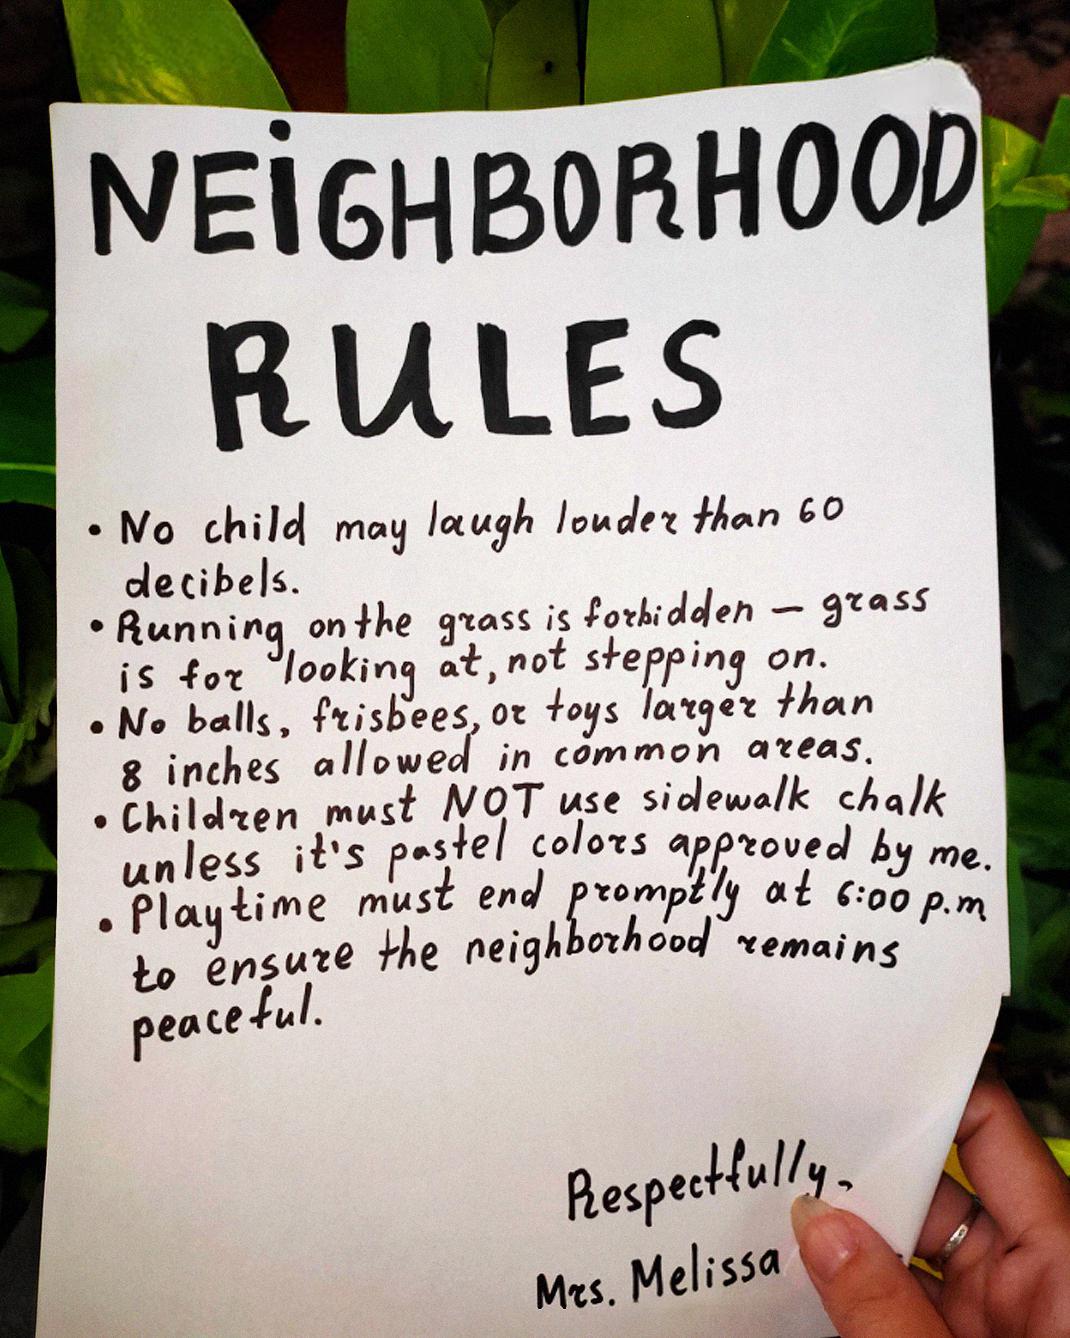 NEiGHBORHOOD
RULES
• No child may laugh louder than 60
decibels.
• Running on the grass is forbidden — grass
is for looking at, not stepping on.
• No balls, frisbees, or toys larger than
8 inches allowed in common areas.
• Children must NOT use sidewalk chalk
unless it's pastel colors approved by me.
• Playtime must end promptly at 6:00 p.m
to ensure the neighborhood remains
peaceful.
Respectfully,
Mrs. Melissa